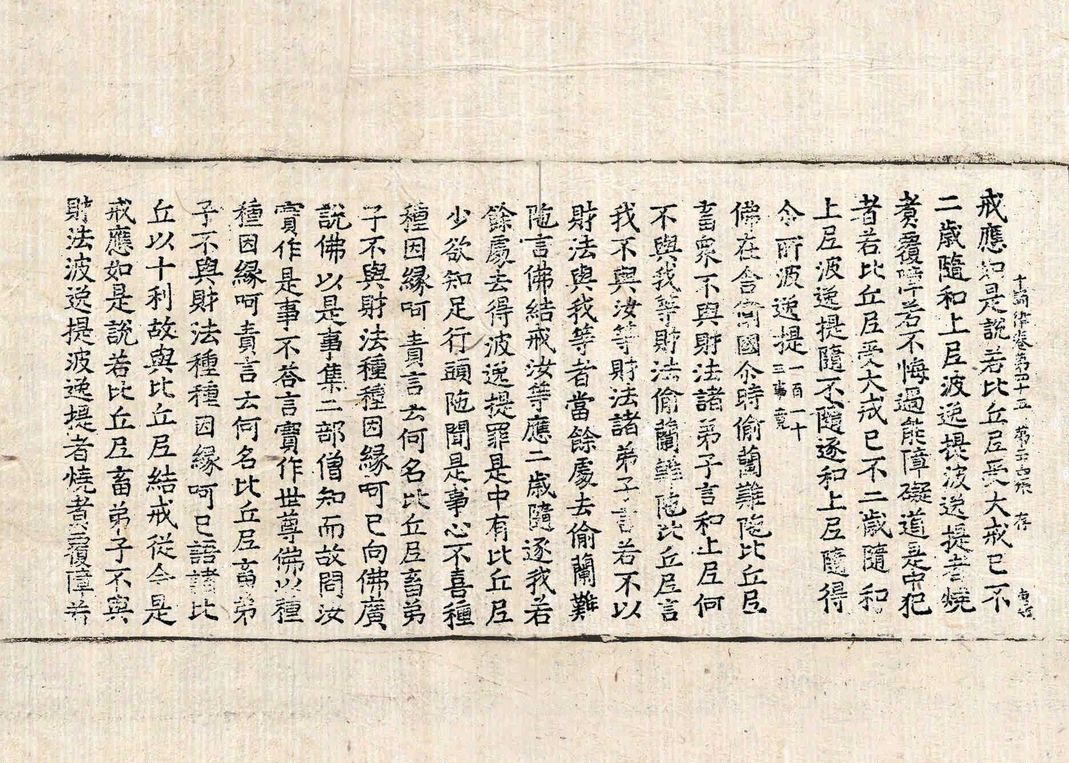 十誦律卷第四十五 第二十六張 存
戒應如是說若比丘尼受大戒已不
二歲隨和上尼波逸提波逸提者燒
煑覆障若不悔過能障礙道是中犯
者若比丘尼受大戒已不二歲隨和
上尼波逸提隨不隨逐和上尼隨得
尒所波逸提一百一十三事竟
佛在舍衛國尒時偷蘭難陁比丘尼
畜衆不與財法諸弟子言和上尼何
不與我等財法偷蘭難陁比丘尼言
我不與汝等財法諸弟子言若不以
財法與我等者當餘處去偷蘭難
陁言佛結戒汝等應二歲隨逐我若
餘處去得波逸提罪是中有比丘尼
少欲知足行頭陁聞是事心不喜種
種因緣呵責言云何名比丘尼畜弟
子不與財法種種因緣呵已向佛廣
說佛以是事集二部僧知而故問汝
實作是事不荅言實作世尊佛以種
種因緣呵責言云何名比丘尼畜弟
子不與財法種種因緣呵已語諸比
丘以十利故與比丘尼結戒從今是
戒應如是說若比丘尼畜弟子不與
財法波逸提波逸提者燒煑覆障若